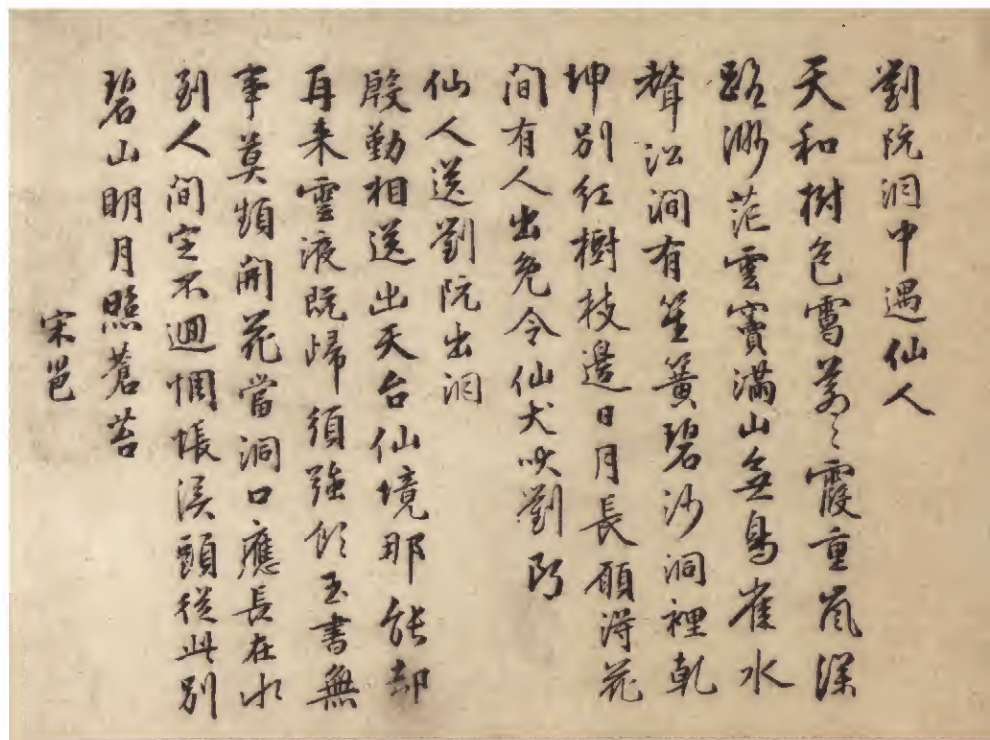 劉阮洞中遇仙人
天和樹色靄蒼〻霞重嵐深
路渺茫雲竇滿山無鳥雀水
聲沿澗有笙簧碧沙洞裡乾
坤別紅樹枝邊日月長願得花
間有人出免令仙犬吠劉阮
仙人送劉阮出洞
殷勤相送出天台仙境那能却
再来雲液既歸須強飲玉書無
事莫頻開花當洞口應長在水
到人間定不迴惆悵溪頭從此別
碧山明月照蒼苔
宋邕